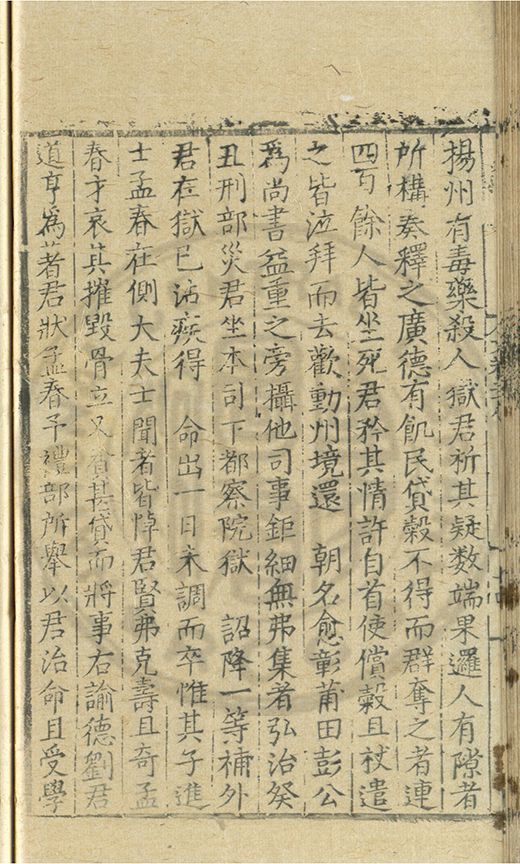 揚州有毒藥殺人獄君析其疑数端果邏人有隙者
所構奏釋之廣德有飢民貸穀不得而群奪之者連
四百餘人皆坐死君矜其情許自首使償穀且杖遣
之皆泣拜而去歡動州境還　朝名愈彰莆田彭公
為尚書益重之旁攝他司事鉅細無弗集者弘治癸
丑刑部災君坐本司下都察院獄　詔降一等補外
君在獄已沾疾得　命出一日未調而卒惟其子進
士孟春在側大夫士聞者皆悼君賢弗克壽且奇孟
春才哀其摧毀骨立又貧甚貸而將事右諭德劉君
道亨為著君狀孟春予禮部所舉以君治命且受學